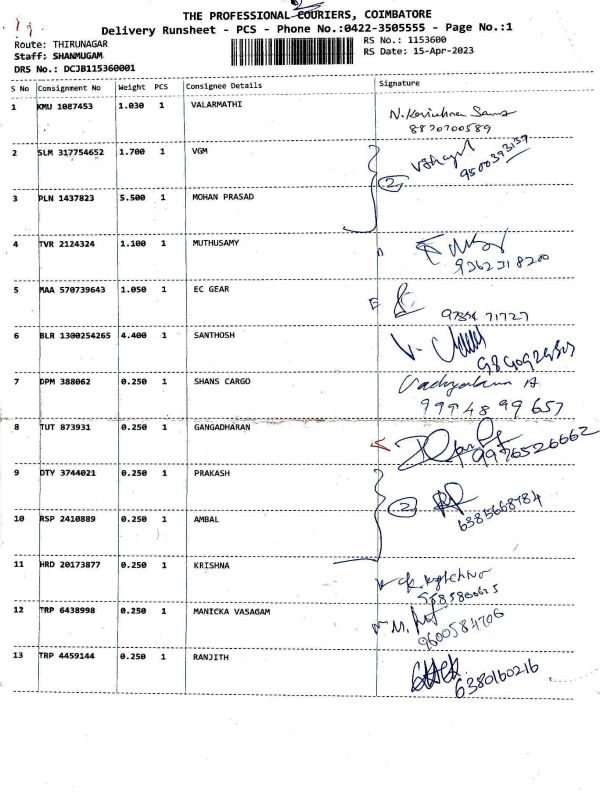 THE PROFESSIONAL COURIERS, COIMBATORE
Delivery Runsheet - PCS - Phone No.:0422-3505555 - Page No.:1
Route: THIRUNAGAR
RS No.: 1153600
Staff: SHANMUGAM
RS Date: 15-Apr-2023
DRS No.: DCJB115360001
S No Consignment No Weight PCS Consignee Details Signature
1 KMU 1087453 1.030 1 VALARMATHI
8870700589
2 SLM 317754652 1.700 1 VGM
9500393137
2
3 PLN 1437823 5.500 1 MOHAN PRASAD
4 TVR 2124324 1.100 1 MUTHUSAMY
9362318200
5 MAA 570739643 1.050 1 EC GEAR
6 BLR 1300254265 4.400 1 SANTHOSH
7 DPM 388062 0.250 1 SHANS CARGO
9994899657
8 TUT 873931 0.250 1 GANGADHARAN
9976526662
9 DTY 3744021 0.250 1 PRAKASH
2
6385668784
10 RSP 2410889 0.250 1 AMBAL
11 HRD 20173877 0.250 1 KRISHNA
12 TRP 6438998 0.250 1 MANICKA VASAGAM
9600584706
13 TRP 4459144 0.250 1 RANJITH
6380160216